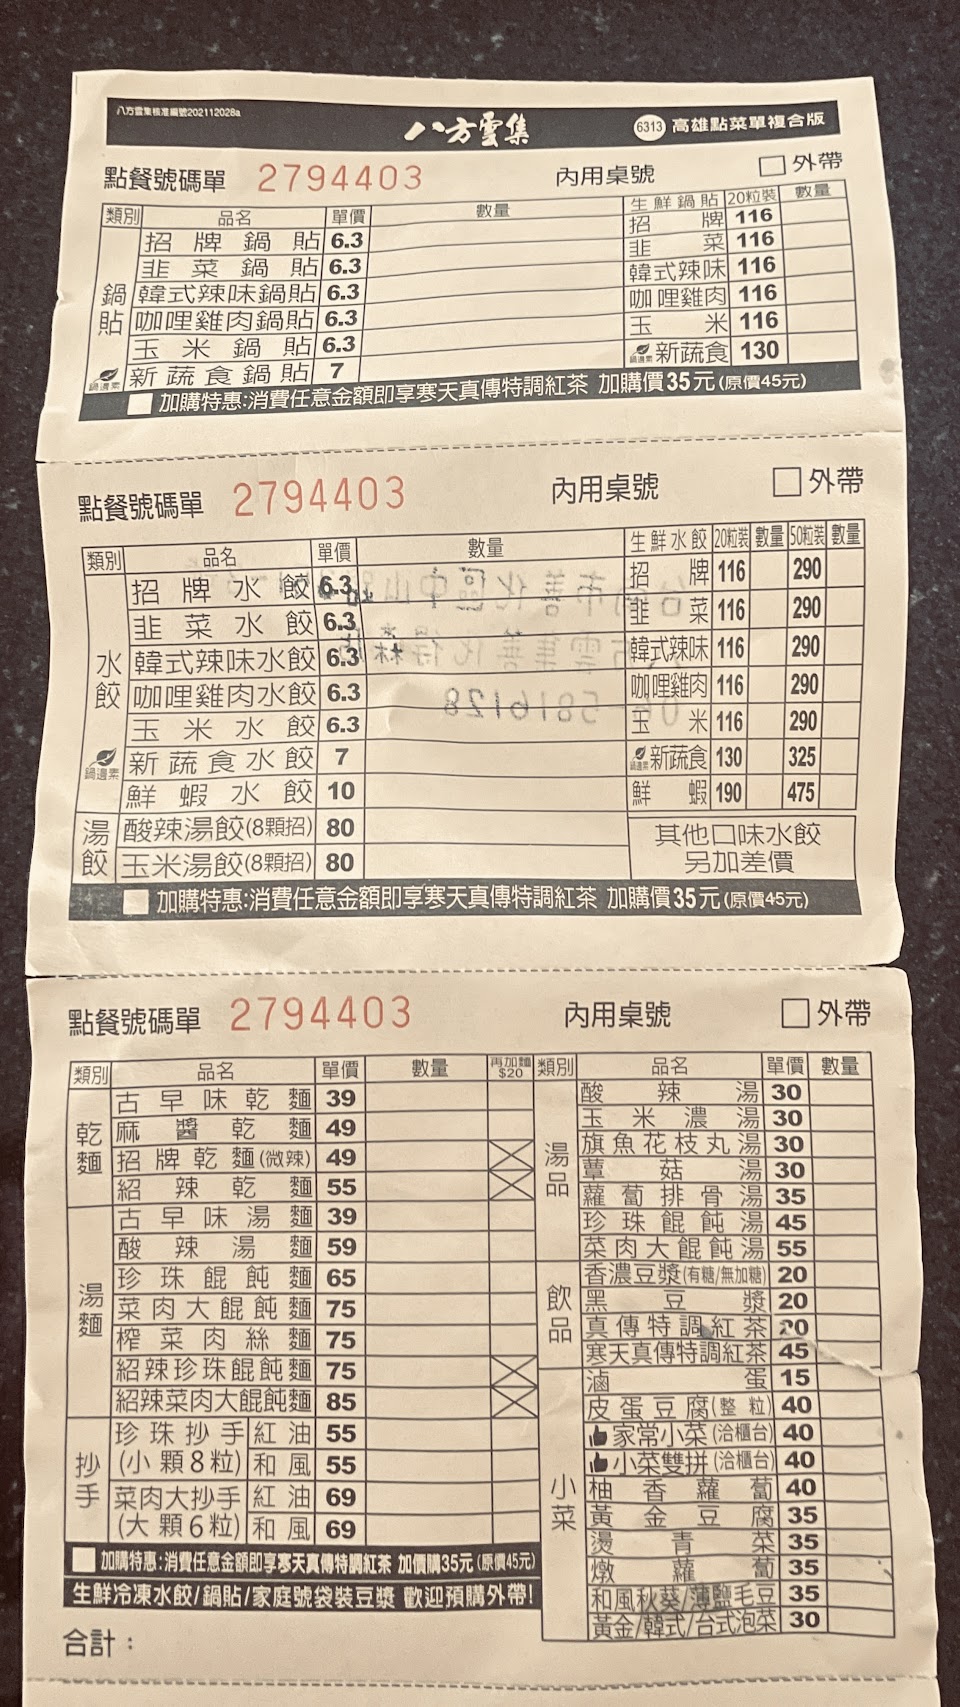 八方雲集核准編號202112028a
八方雲集
6313 高雄點菜單複合版
點餐號碼單 2794403 內用桌號 外帶
類別 品名 單價 數量 生鮮鍋貼 20粒裝 數量
鍋貼
招牌鍋貼 6.3 招牌 116
韭菜鍋貼 6.3 韭菜 116
韓式辣味鍋貼 6.3 韓式辣味 116
咖哩雞肉鍋貼 6.3 咖哩雞肉 116
玉米鍋貼 6.3 玉米 116
鍋邊素 新蔬食鍋貼 7 鍋邊素 新蔬食 130
加購特惠:消費任意金額即享寒天真傳特調紅茶 加購價35元(原價45元)
點餐號碼單 2794403 內用桌號 外帶
類別 品名 單價 數量 生鮮水餃 20粒裝 數量 50粒裝 數量
水餃
招牌水餃 6.3 招牌 116 290
韭菜水餃 6.3 韭菜 116 290
韓式辣味水餃 6.3 韓式辣味 116 290
咖哩雞肉水餃 6.3 咖哩雞肉 116 290
玉米水餃 6.3 玉米 116 290
鍋邊素 新蔬食水餃 7 鍋邊素 新蔬食 130 325
鮮蝦水餃 10 鮮蝦 190 475
湯餃
酸辣湯餃(8顆招) 80 其他口味水餃
玉米湯餃(8顆招) 80 另加差價
加購特惠:消費任意金額即享寒天真傳特調紅茶 加購價35元(原價45元)
點餐號碼單 2794403 內用桌號 外帶
類別 品名 單價 數量 再加麵$20
乾麵
古早味乾麵 39
麻醬乾麵 49
招牌乾麵(微辣) 49
紹辣乾麵 55
湯麵
古早味湯麵 39
酸辣湯麵 59
珍珠餛飩麵 65
菜肉大餛飩麵 75
榨菜肉絲麵 75
紹辣珍珠餛飩麵 75
紹辣菜肉大餛飩麵 85
抄手
珍珠抄手 紅油 55
(小顆8粒) 和風 55
菜肉大抄手 紅油 69
(大顆6粒) 和風 69
加購特惠:消費任意金額即享寒天真傳特調紅茶 加價購35元(原價45元)
生鮮冷凍水餃/鍋貼/家庭號袋裝豆漿 歡迎預購外帶!
合計：
類別 品名 單價 數量
湯品
酸辣湯 30
玉米濃湯 30
旗魚花枝丸湯 30
蕈菇湯 30
蘿蔔排骨湯 35
珍珠餛飩湯 45
菜肉大餛飩湯 55
飲品
香濃豆漿(有糖/無加糖) 20
黑豆漿 20
真傳特調紅茶 20
寒天真傳特調紅茶 45
小菜
滷蛋 15
皮蛋豆腐(整粒) 40
家常小菜(洽櫃台) 40
小菜雙拼(洽櫃台) 40
柚香蘿蔔 40
黃金豆腐 35
燙青菜 35
燉蘿蔔 35
和風秋葵/薄鹽毛豆 35
黃金/韓式/台式泡菜 30